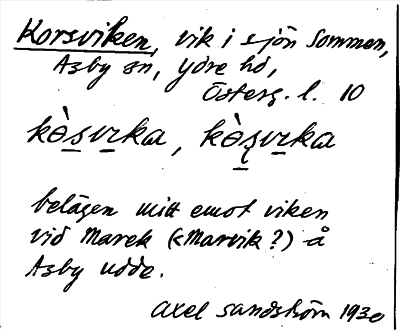 Korsviken, vik i sjön Sommen,
Asby sn, Ydre hd,
Österg. l. 10
kòsvika, kòşvika
belägen mitt emot viken
vid Marek (<Marvik?) å
Asby udde.
Axel Sandström 1930